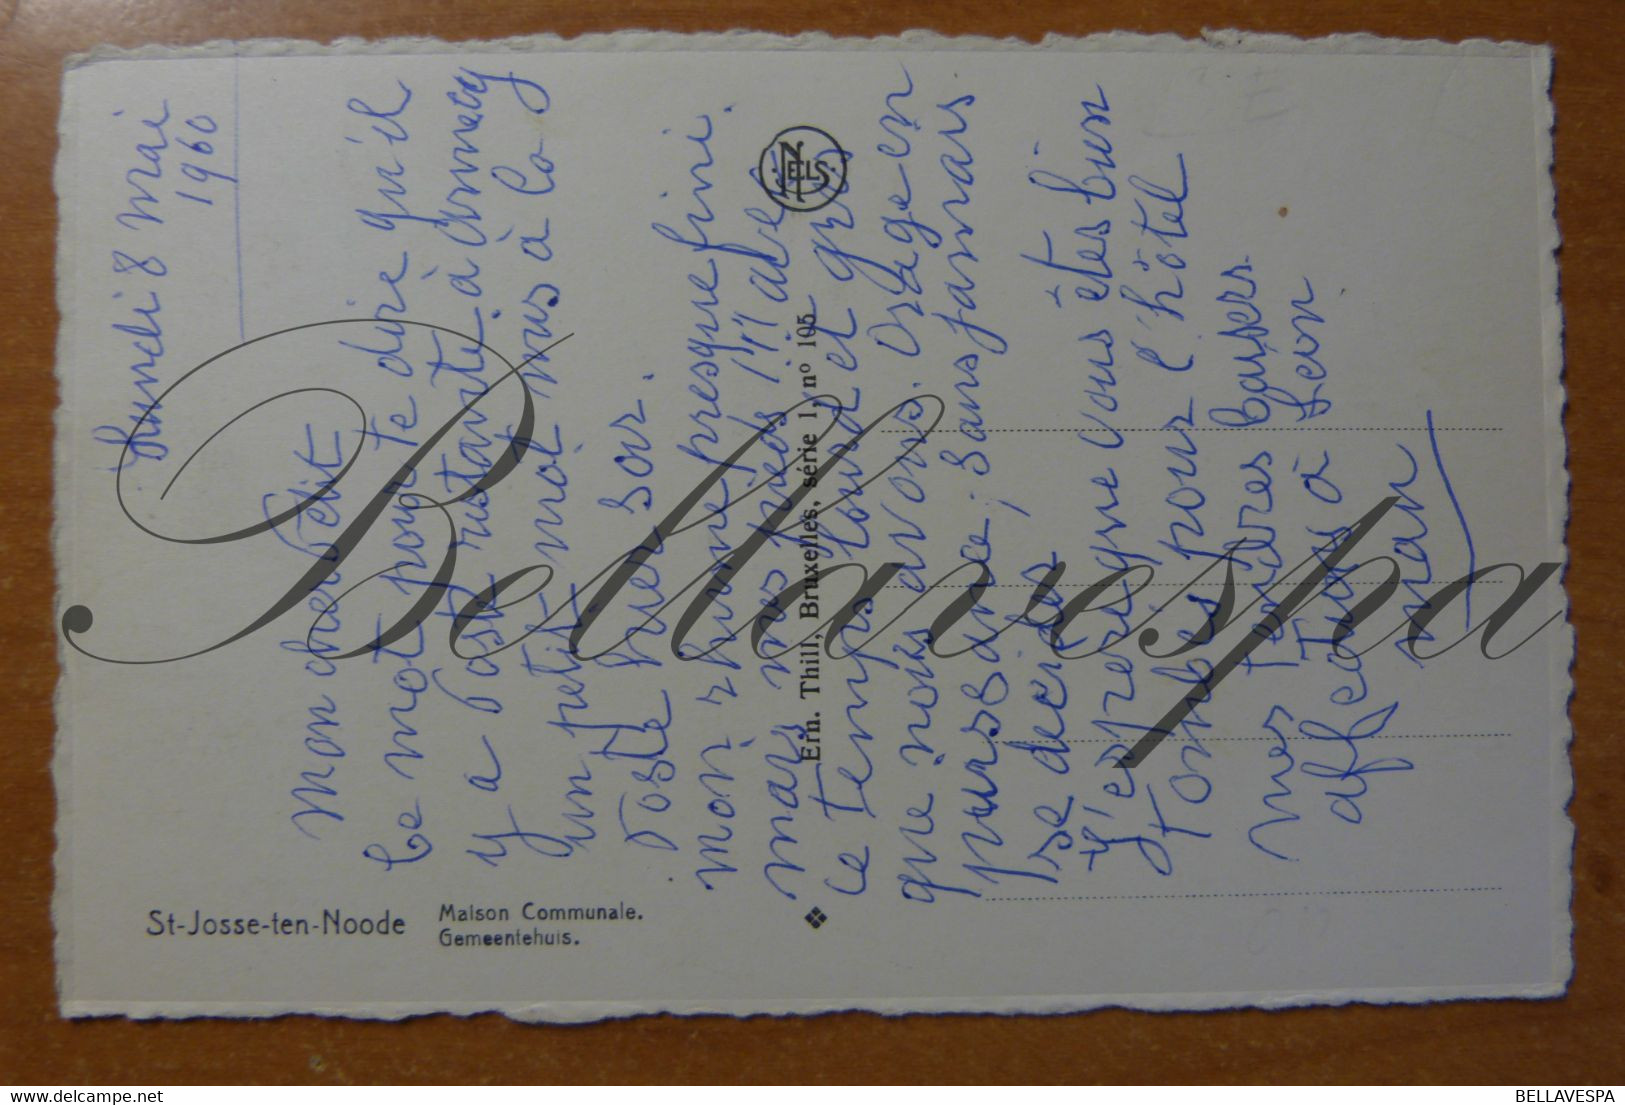 Lundi 8 mai
1960
Mon cher Petit
Ce mot pour te dire qu'il
y a Poste restante à Annecy
un petit mot mis à la
Poste hier soir.
mon rhume presque fini.
mais mes pieds !!!! avec
le temps lourd et gris
que nous avons. Orage en
puissance, sans jamais
se décider
J'espère que vous êtes bien
tombés pour l'hôtel
mes tendres baisers
affectueux à Léon
man
St-Josse-ten-Noode
Maison Communale.
Gemeentehuis.
Ern. Thill, Bruxelles, série 1, n° 105
NELS
Bellavespa
BELLAVESPA